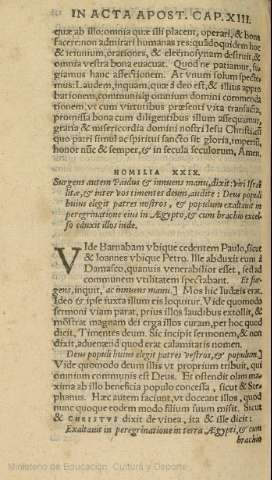 IN ACTA APOST. CAP. XIII.
quæ ab illo: omnia quæ illi placent, operari, & bona
facere: non admirari humanas res: quādoquidem hoc
& ieiunium, orationes, & eleemosynam destruit, &
omnia vestra bona euacuat. Quod ne patiamur, fu-
giamus hanc affectionem. At vnum solum specte-
mus: Laudem, inquam, quæ à deo est, & illius appro
bationem, communisq́; omnium domini commenda
tionem, vt cum virtutibus præsenti vita transacta,
promissa bona cum diligentibus illum assequamur,
gratia & misericordia domini nostri Iesu Christi, cū
quo patri simul ac spiritui sancto sit gloria, imperiū,
honor nūc & semper, & in secula seculorum, Amen.
HOMILIA XXIX.
Surgens autem Paulus & innuens manu, dixit: Viri Israe
litæ, & inter vos timentes deum, audite: Deus populi
huius elegit patres nostros, & populum exaltauit in
peregrinatione eius in Ægypto, & cum brachio excel-
so eduxit illos inde.
VIde Barnabam vbique cedentem Paulo, sicut
& Ioannes vbique Petro. Ille abduxit eum à
Damasco, quanuis venerabilior esset, sed ad
communem vtilitatem spectabant. Et sur-
gens, inquit, ac innuens manu.] Mos hic Iudæis erat.
Ideo & ipse iuxta illum eis loquitur. Vide quomodo
sermoni viam parat, prius illos laudibus extollit, &
mōstrat magnam dei erga illos curam, per hoc quod
dicit, Timentes deum. Sic incipit sermonem, & non
dixit, aduenæ: id quod erat calamitatis nomen.
Deus populi huius elegit patres vestros, & populum.]
Vide quomodo deum illis vt proprium tribuit, qui
omnium communis est Deus. Et ostendit olim ma-
xima ab illo beneficia populo concessa, sicut & Ste-
phanus. Hæc autem faciunt, vt doceant illos, quod
nunc quoque eodem modo filium suum misit. Sicut
& CHRISTVS dixit de vinea, ita & ille dicit:
Exaltauit in peregrinatione in terra Ægypti, & cum
brachio
Ministerio de Educación, Cultura y Deporte